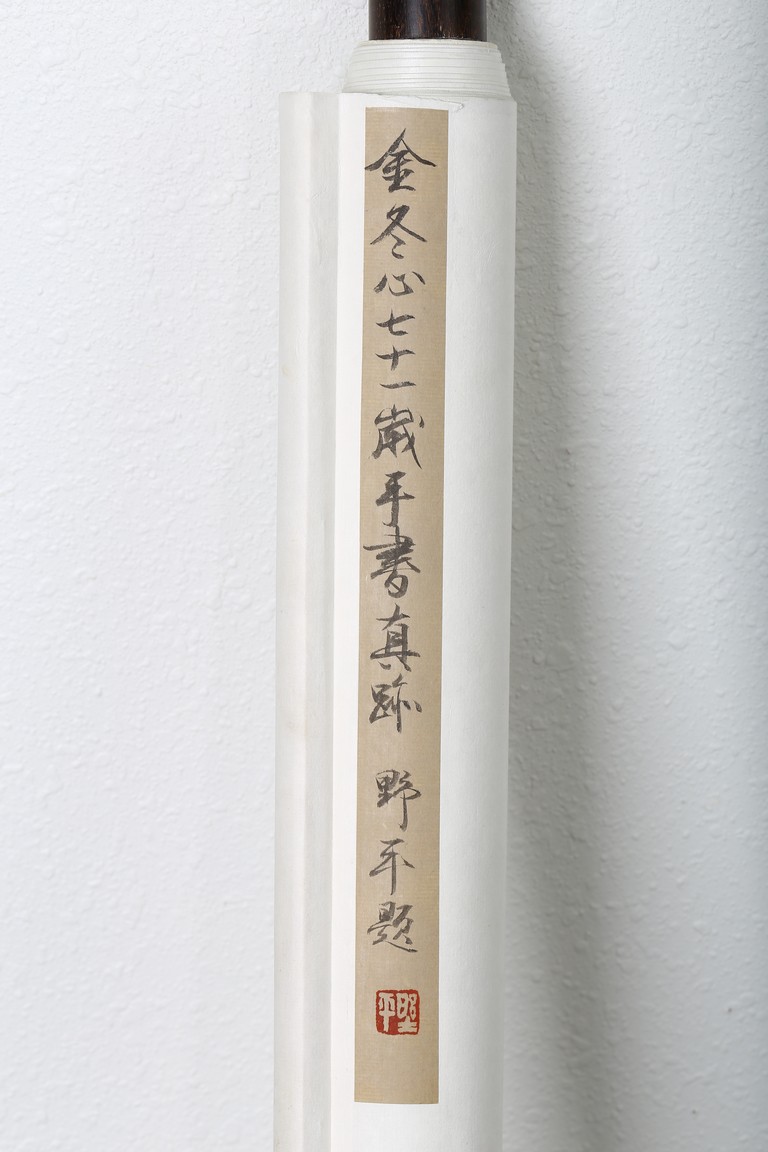 金冬心七十一歲手書真跡 野平題
野平